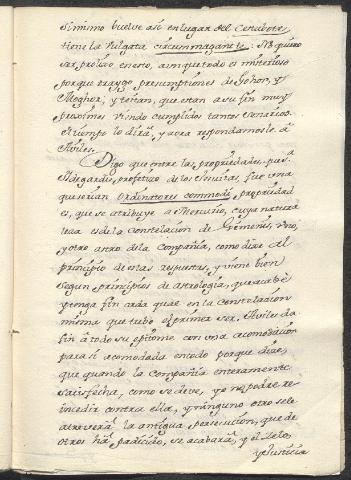 simismo buelve así en lugar del Cenabote
tiene la Vulgata circummagante: No quiero
ser prolixo en esto, aunque todo es misterioso
porque traygo presumptiones de Gohor, y
Moghor, y teitan, que estan a su fin muy
proximos viendo cumplidos tantos senarios.
El tiempo lo dirá, y aora respondamosle á
Aviles.
Digo que entre las propriedades, que S.ta
Hildegardis, profetizo de los Jesuitas, fue una
que serian Ordinatores commodi, propriedad
es, que se atribuye a Mercurio, cuya natura
leza es de la constelacion de Géminis, uno,
y otro astro de la Compañia, como dixe al
principio de estas respuestas, y viene bien
segun principios de astrologia, que acabe
y tenga fin cada qual en la constelacion
misma que tubo el primer ser. Aviles da
fin á todo su epitome con una acomodacion
para si acomodada en todo porque dice,
que quando la Compañia enteramente
satisfecha, como se deve, yo no podré re-
incidir contra ella, y ninguno otro se le
atreverá la antigua persecucion, que de
otros há padecido, se acabará, y el Zelo,
y Justicia